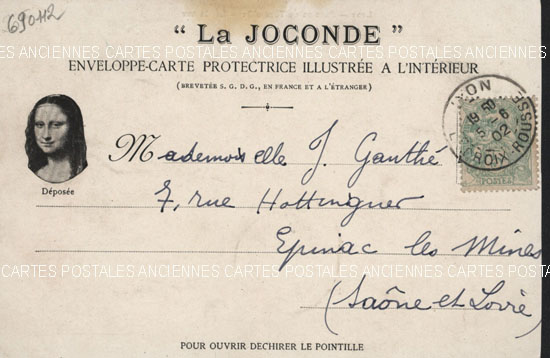 69042
“ La JOCONDE ”
ENVELOPPE-CARTE PROTECTRICE ILLUSTRÉE A L'INTÉRIEUR
(BREVETÉE S. G. D. G., EN FRANCE ET A L'ÉTRANGER)
LYON
19 30
5 - 6
02
CROIX-ROUSSE
POSTES
Déposée
Mademoiselle J. Gauthé
7, rue Hottinguer
Epinac les Mines
(Saône et Loire)
POUR OUVRIR DECHIRER LE POINTILLE
ANCIENNES CARTES POSTALES ANCIENNES CARTES POSTALES ANCIENNES
CARTES POSTALES ANCIENNES CARTES POSTALES ANCIENNES CARTES POSTALES